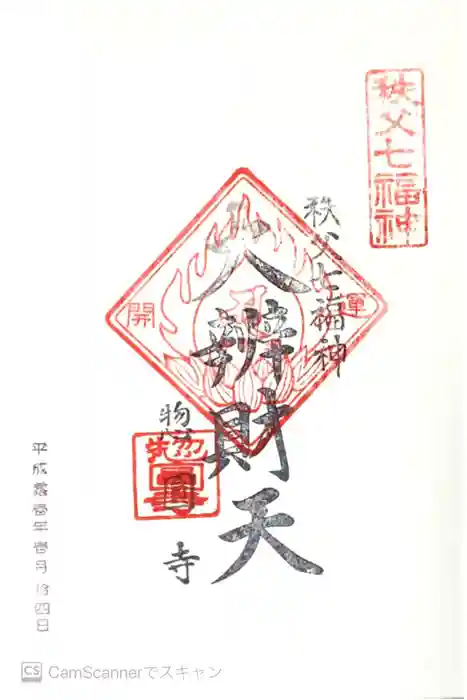 秩父七福神
秩父七福神
開運
大辨財天
惣圓寺
平成 年壱月拾四日
CS CamScannerでスキャン